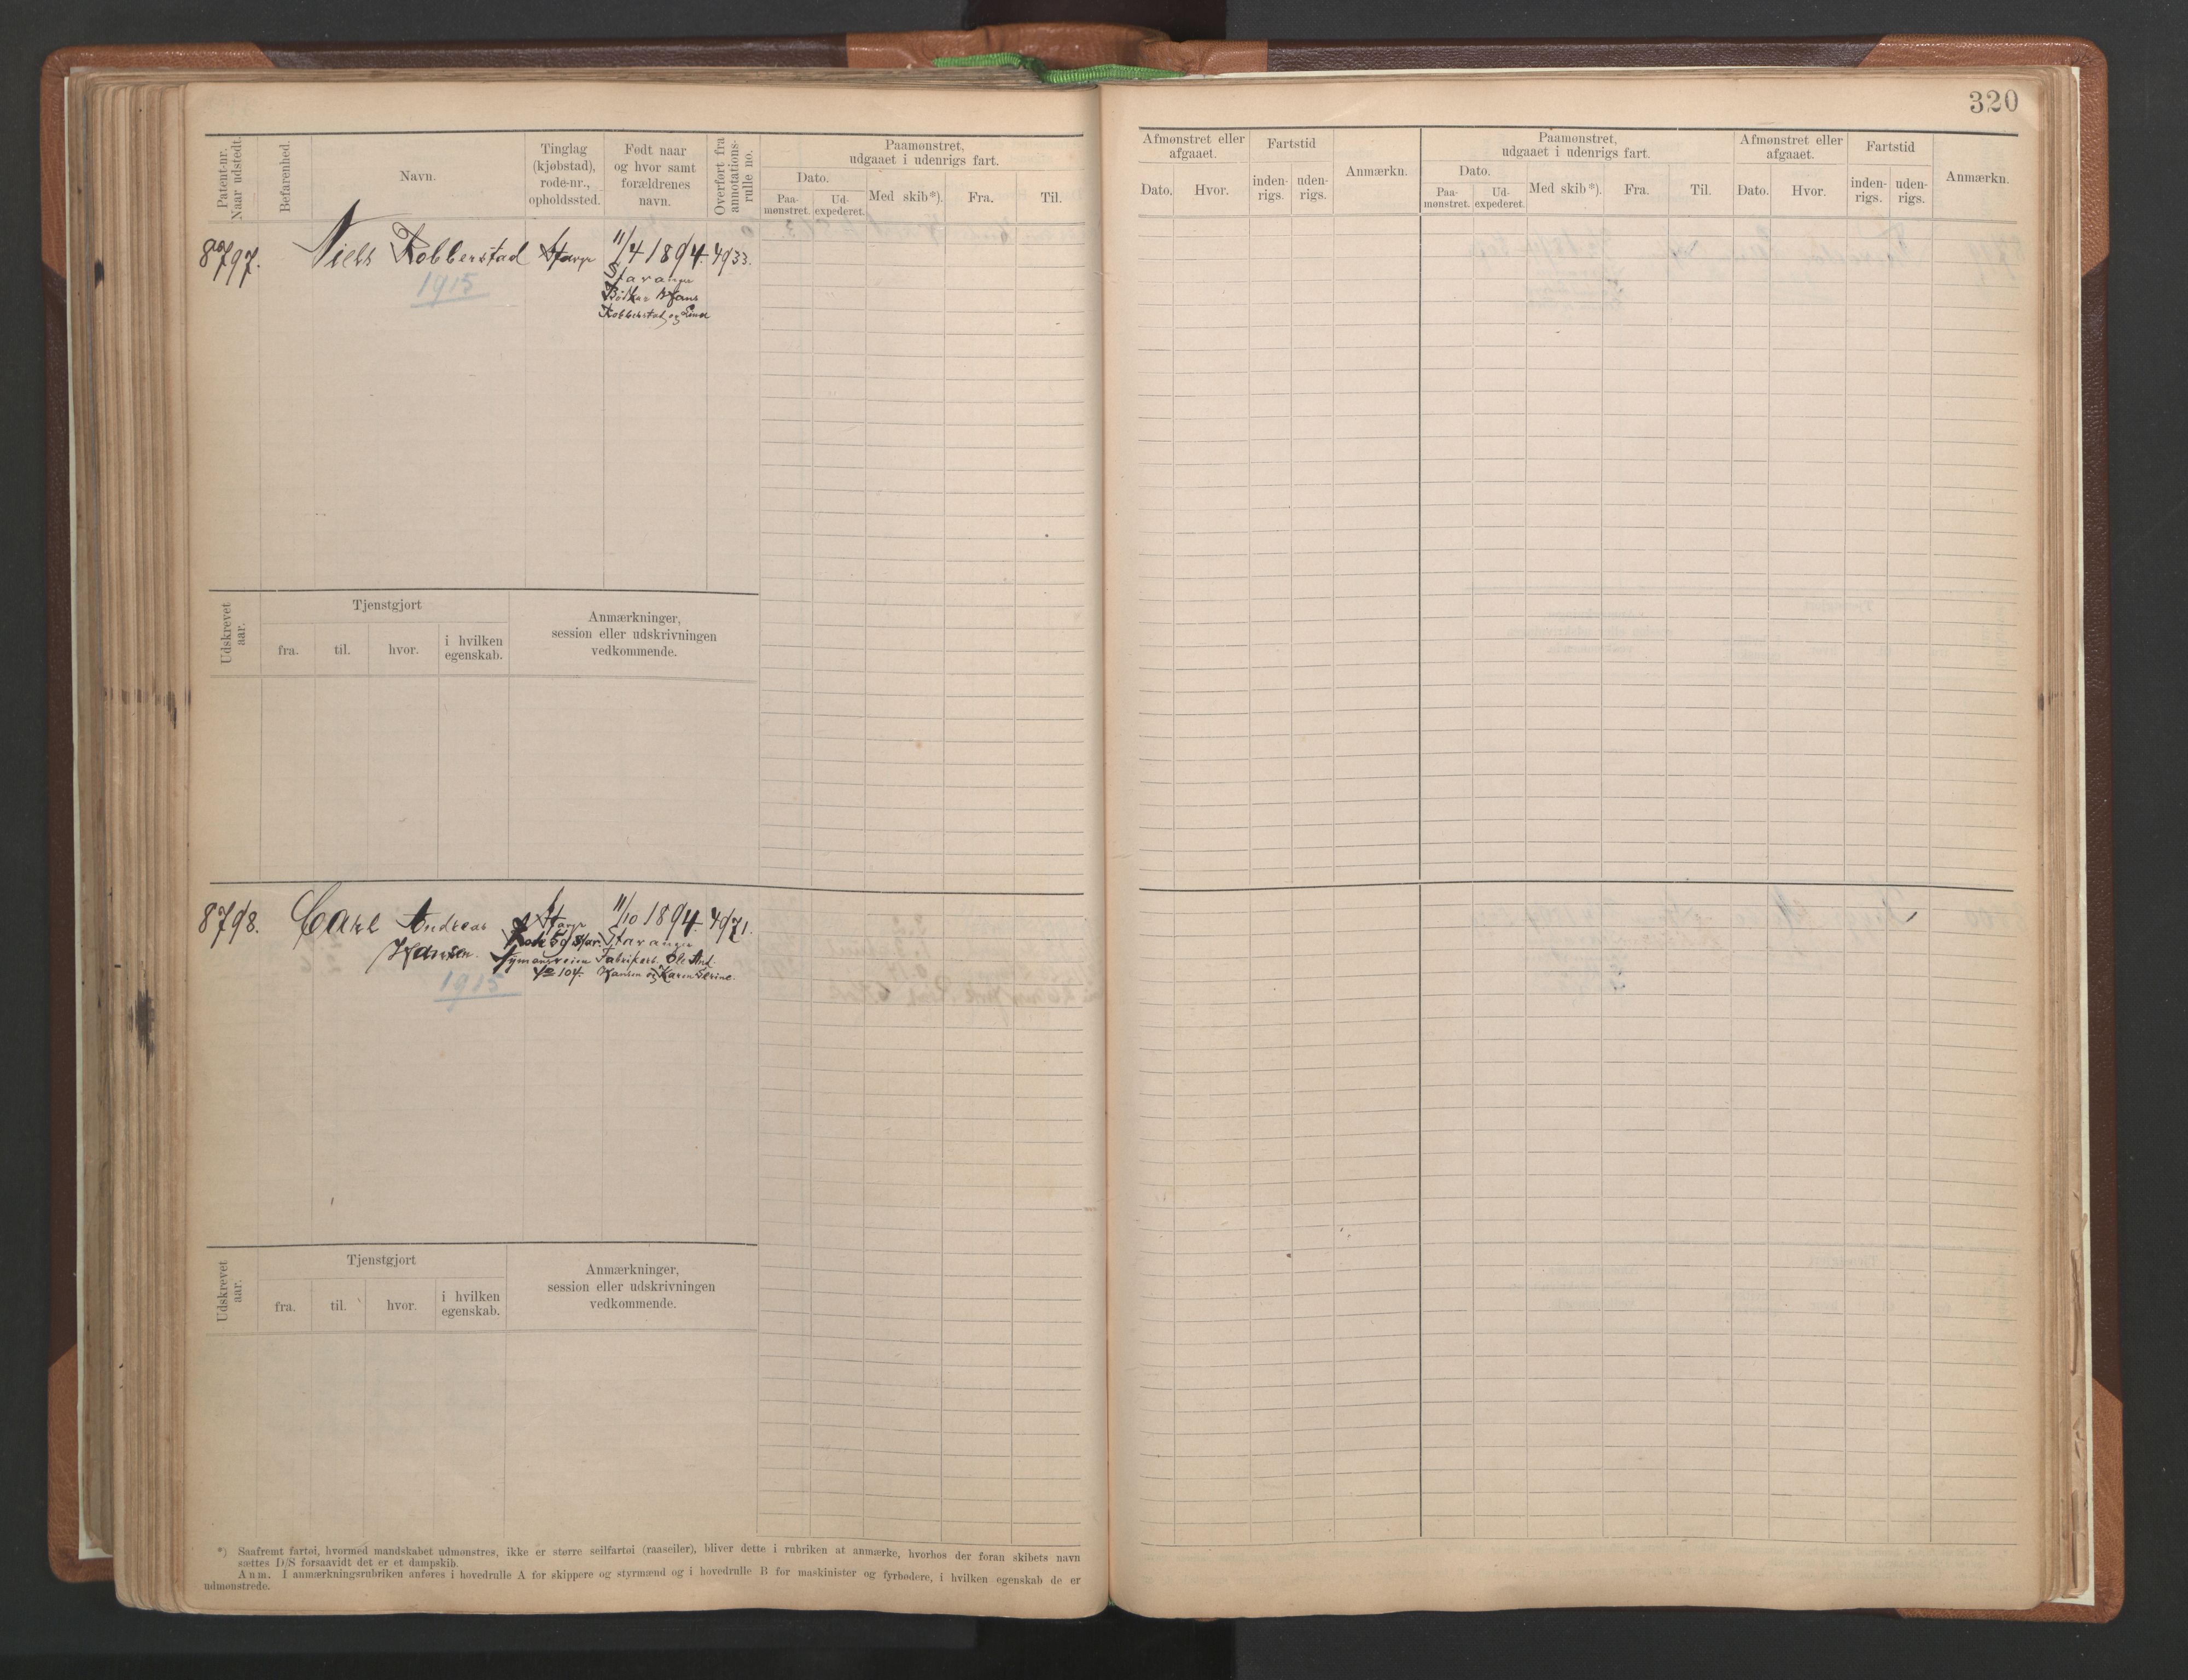 320
Patent-nr. Naar udstedt.
Befarenhed.
Navn.
Tinglag (kjøbstad), rode-nr., opholdssted.
Født naar og hvor samt forældrenes navn.
Overført fra annotationsrulle no.
Paamønstret, udgaaet i udenrigs fart.
Dato.
Paamønstret.
Udexpederet.
Med skib*).
Fra.
Til.
Afmønstret eller afgaaet.
Dato.
Hvor.
Fartstid
indenrigs.
udenrigs.
Anmærkn.
Paamønstret, udgaaet i udenrigs fart.
Dato.
Paamønstret.
Udexpederet.
Med skib*).
Fra.
Til.
Afmønstret eller afgaaet.
Dato.
Hvor.
Fartstid
indenrigs.
udenrigs.
Anmærkn.
8797. Niels Robberstad Stavgr 11/4 1894. 4933.
Stavanger
1915
Hans
Robberstad og
Udskrevet aar.
Tjenstgjort
fra.
til.
hvor.
i hvilken egenskab.
Anmærkninger, session eller udskrivningen vedkommende.
8798. Carl Andreas Stavgr 11/10 1894. 4971.
Hansen. Rode 59 Stav. Stavanger
Fabrikarb. Ole And.
No 104. Hansen og Karen Serine
1915
Udskrevet aar.
Tjenstgjort
fra.
til.
hvor.
i hvilken egenskab.
Anmærkninger, session eller udskrivningen vedkommende.
*) Saafremt fartøi, hvormed mandskabet udmønstres, ikke er større seilfartøi (raaseiler), bliver dette i rubriken at anmærke, hvorhos der foran skibets navn
sættes D/S forsaavidt det er et dampskib.
Anm. I anmærkningsrubriken anføres i hovedrulle A for skippere og styrmænd og i hovedrulle B for maskinister og fyrbødere, i hvilken egenskab de er
udmønstrede.